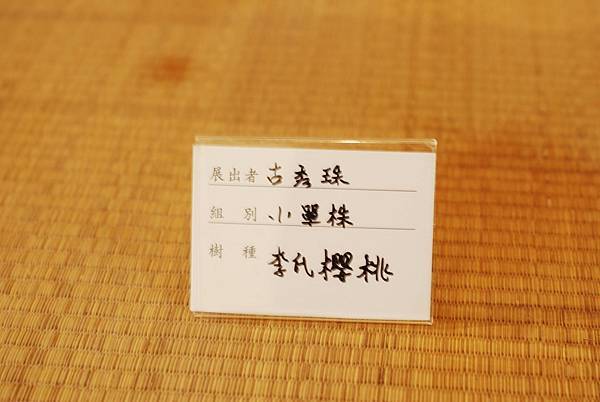 展出者 古秀珠
組別 小單株
樹種 李氏櫻桃